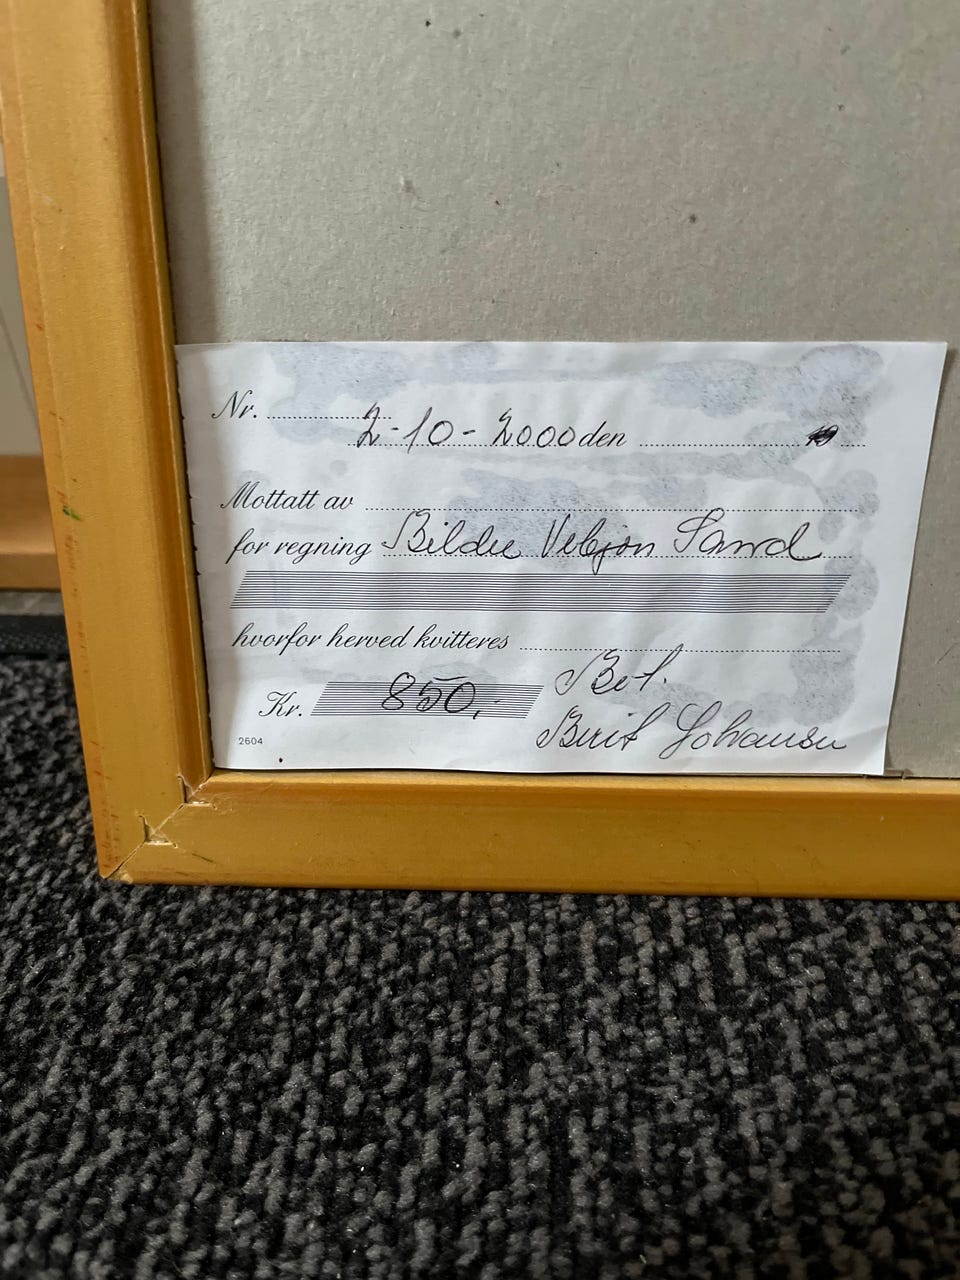 Nr. 2-10-2000 den 19
Mottatt av
for regning Bilde Vebjøn Sand
hvorfor herved kvitteres
Kr. 850,- Bet.
Birit Johansen
2604